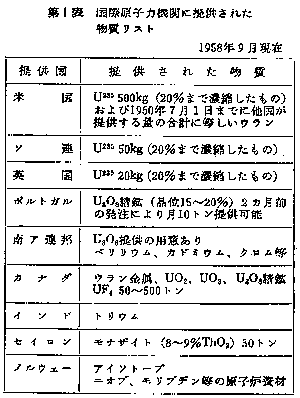 第1表 国際原子力機関に提供された
物質リスト
1958年9月現在
提供国 提供された物質
米国 U²³⁵ 500kg (20%まで濃縮したもの)
および1960年7月1日までに他国が
提供する量の合計に等しいウラン
ソ連 U²³⁵ 50kg (20%まで濃縮したもの)
英国 U²³⁵ 20kg (20%まで濃縮したもの)
ポルトガル U₃O₈精鉱 (品位15～20%) 2カ月前
の発注により月10トン提供可能
南ア連邦 U₃O₈提供の用意あり
ベリリウム、カドミウム、クロム等
カナダ ウラン金属、UO₂、UO₃、U₃O₈精鉱
UF₄ 50～500トン
インド トリウム
セイロン モナザイト (8～9%ThO₂) 50トン
ノルウェー アイソトープ
ニオブ、モリブデン等の原子炉資材